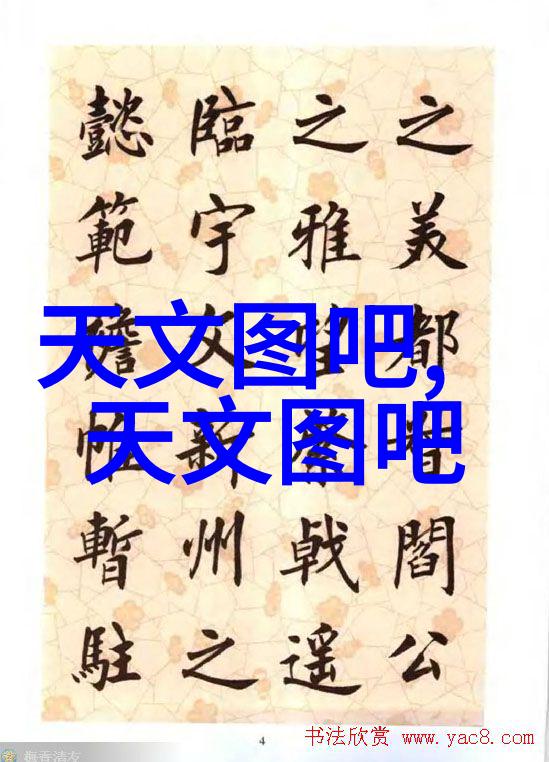 之美都督閻公
之雅望棨戟遥
臨宇文新州之
懿範襜帷暫駐
天文图吧,
天文图吧
4
书法欣赏 www.yac8.com